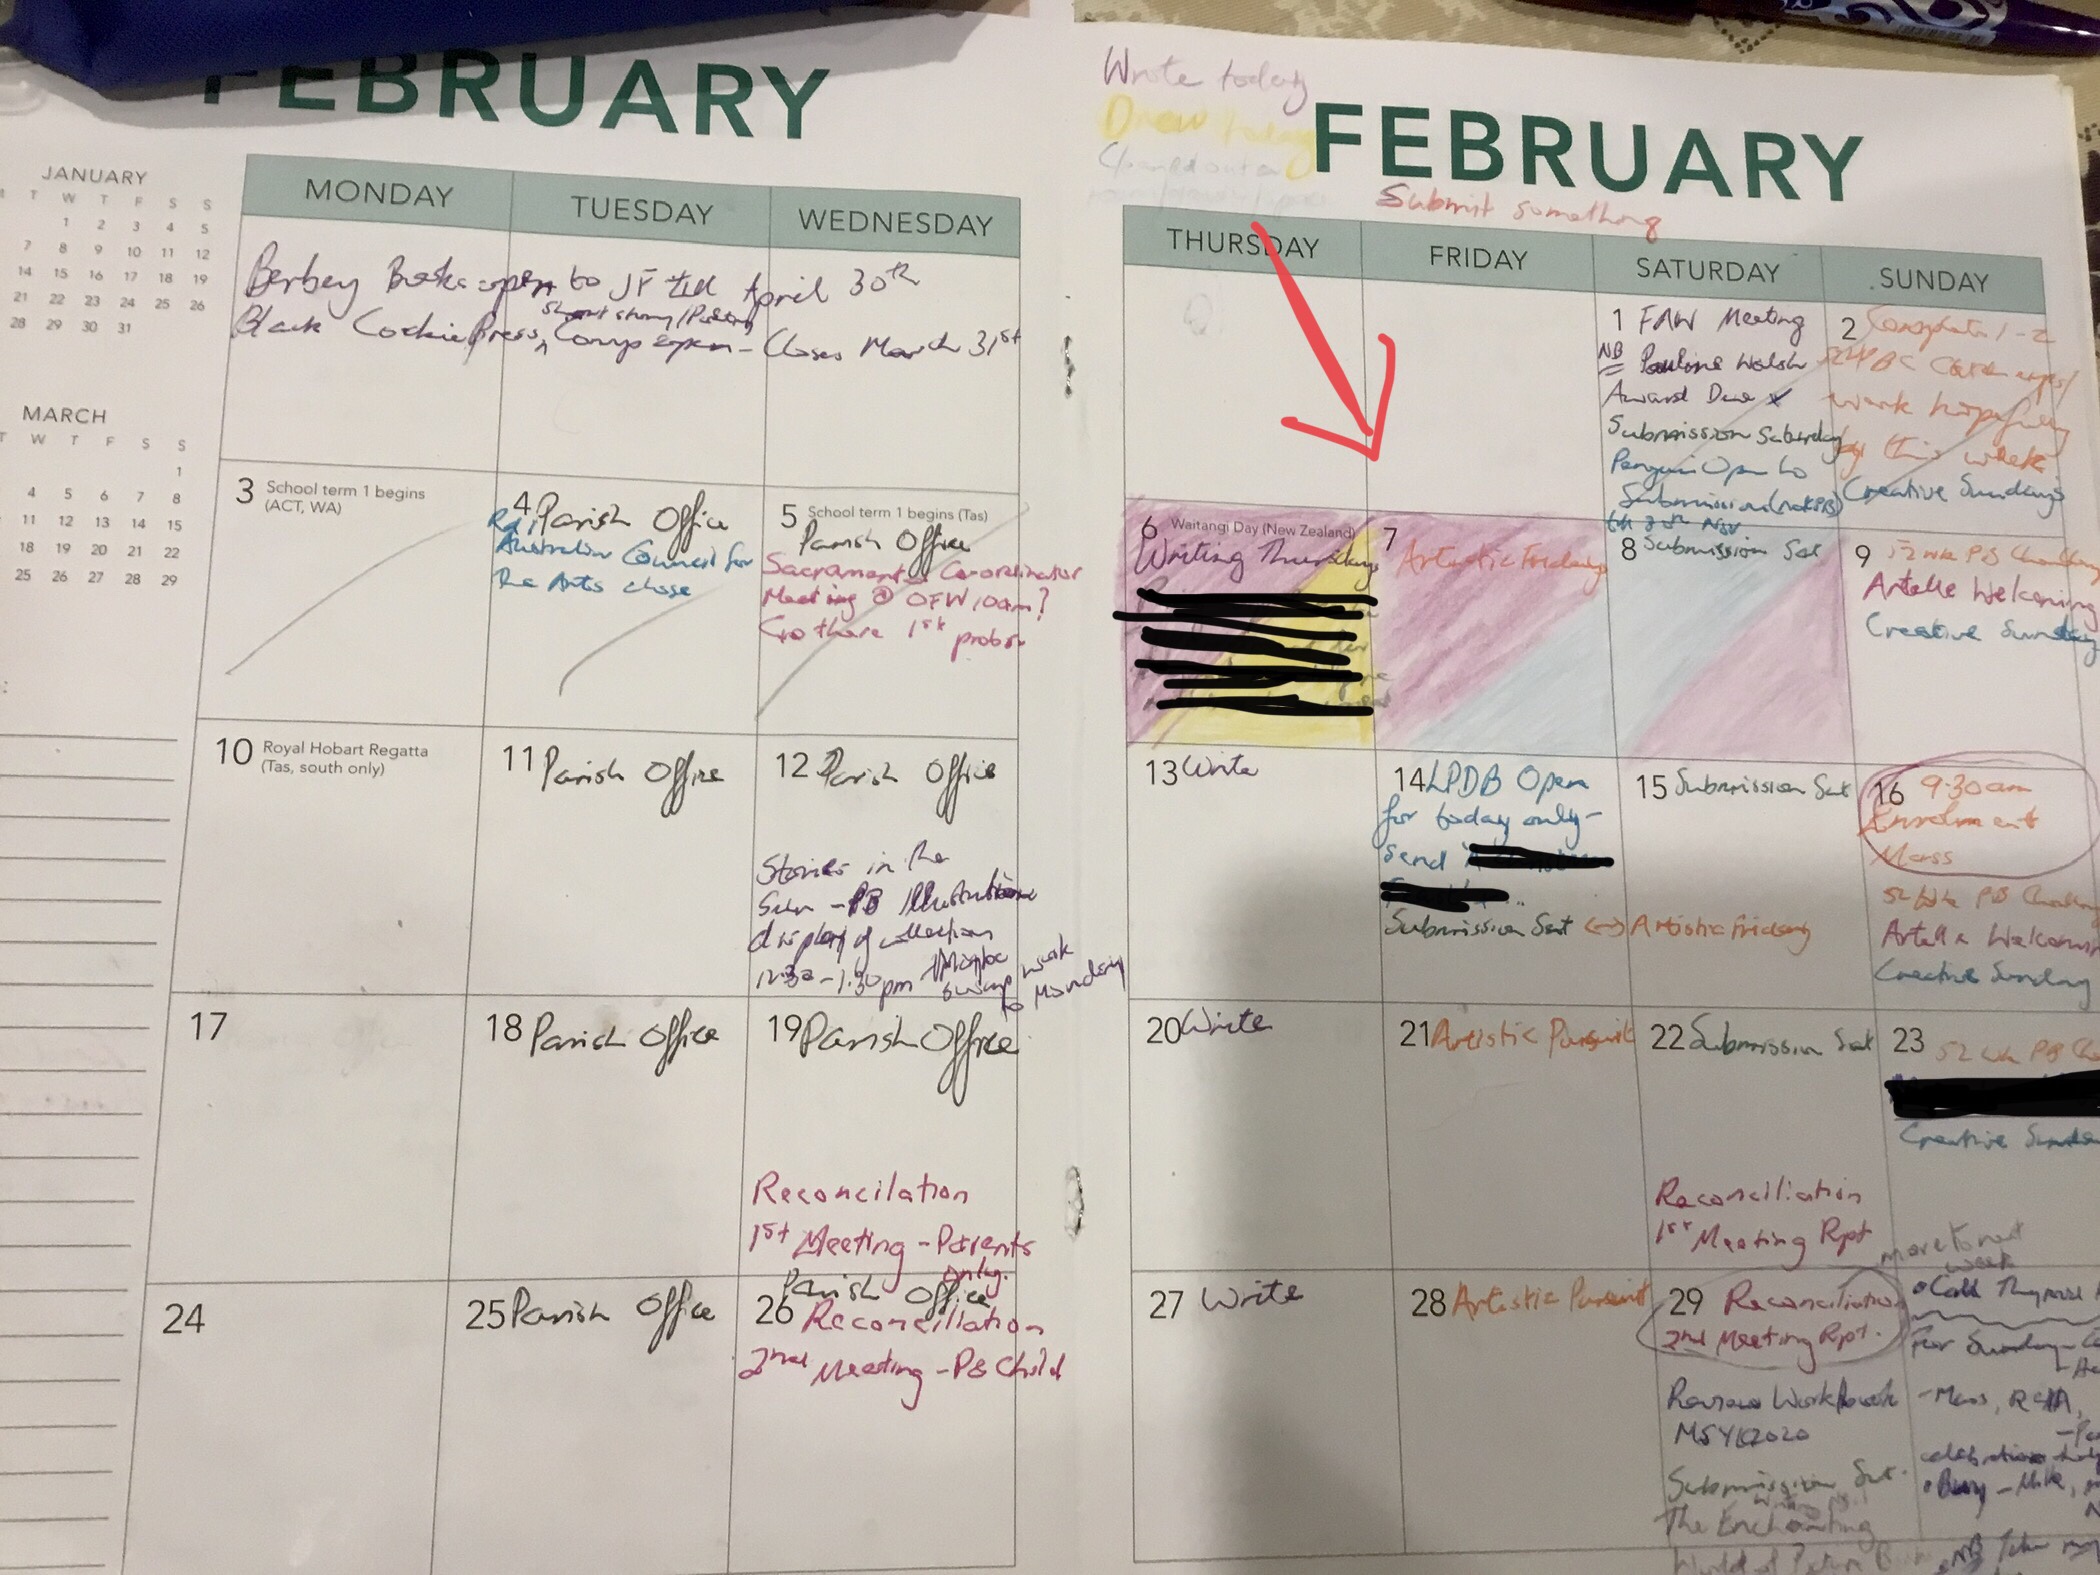 FEBRUARY
JANUARY
T W T F S S
1 2 3 4 5
7 8 9 10 11 12
14 15 16 17 18 19
21 22 23 24 25 26
28 29 30 31
MARCH
T W T F S S
1
4 5 6 7 8
11 12 13 14 15
18 19 20 21 22
25 26 27 28 29
MONDAY TUESDAY WEDNESDAY
Books open to JF till April 30th
short story/
Black Cookie Press, Comp open - Closes March 31st
3 School term 1 begins
(ACT, WA)
4 Parish Office
Australian Council for
the Arts close
5 School term 1 begins (Tas)
Parish Office
Sacrament Co-ordinator
Meeting @ OFW 10am?
Go there 1st probs.
10 Royal Hobart Regatta
(Tas, south only)
11 Parish Office
12 Parish Office
Stories in the
Sun - PB Illustrations
display of collection
12.30-1.30pm Maybe
swap work
to Monday
17
18 Parish Office
19 Parish Office
Reconcilation
1st Meeting - Parents
only.
24
25 Parish Office
Parish Office
26 Reconciliation
2nd Meeting - P& Child
Wrote today
Drew today
Cleaned out a
FEBRUARY
Submit something
THURSDAY FRIDAY SATURDAY SUNDAY
1 FAW Meeting
NB Pauline Walsh
Award Due x
Submission Saturday
Penguin Open to
Submission
2
work hopefully
by this week
Creative Sundays
6 Waitangi Day (New Zealand)
Writing Thursdays
7 Artistic Fridays
8 Submission Sat
9 52 wk PB Challenge
Artelle Welcoming
Creative Sunday
13 Write
14 LPDB Open
for today only -
send
Submission Sat <-> Artistic Friday
15 Submission Sat
16 9.30am
Enrolment
Mass
52 Wk PB
Artelle
Creative Sunday
20 Write
21 Artistic Pursuit
22 Submission Sat
Reconciliation
1st Meeting Rpt
23 52 wk PB
Creative Sunday
move to next
week
27 Write
28 Artistic Pursuit
29 Reconciliation
2nd Meeting Rpt.
Review Workbook
MSYK2020
Submission Sat.
The Enchanting
World of
• Call
For Sunday
- Mass, RCIA,
• Busy
NB